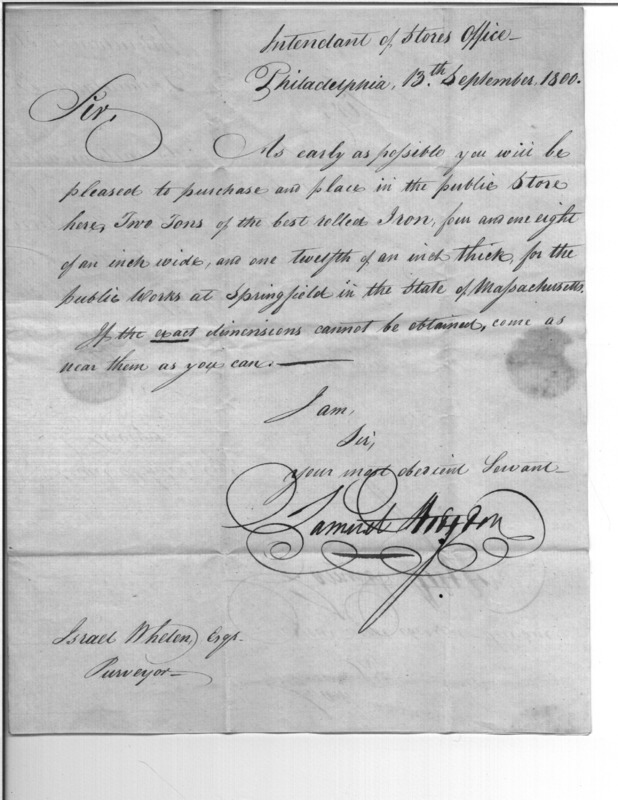 Intendant of Stores Office
Philadelphia, 13th September. 1800.
Sir,
As early as possible you will be
pleased to purchase and place in the public Store
here, Two Tons of the best rolled Iron, four and one eight
of an inch wide, and one twelfth of an inch thick, for the
public Works at Springfield in the State of Massachusetts.
If the exact dimensions cannot be obtained, come as
near them as you can.
I am,
Sir,
your most obedient Servant
Samuel Hodgdon
Israel Whelen, Esqr.
Purveyor